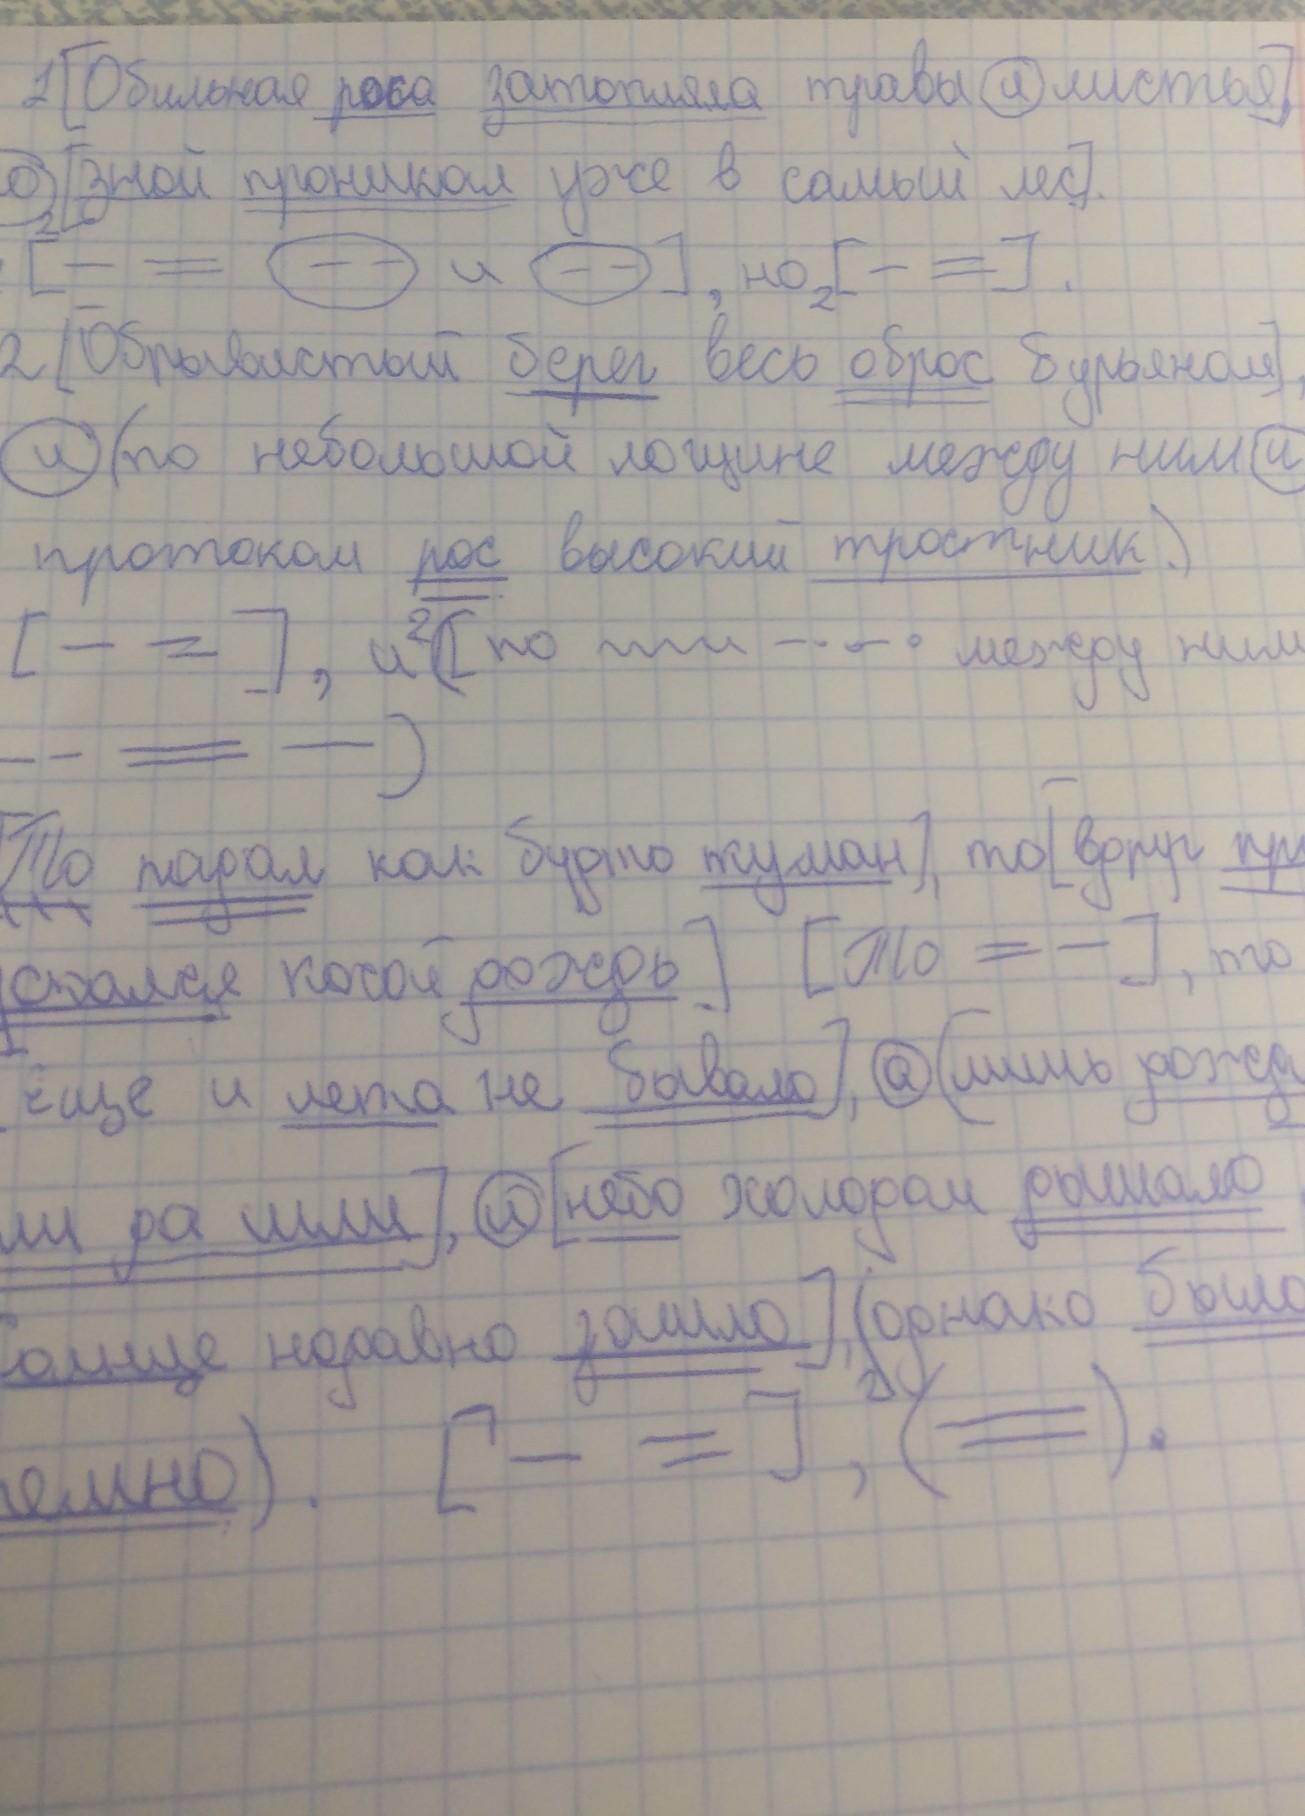 1 [Обильная роса затопляла травы и листья],
о 2 [зной проникал уже в самый лес].
[– = (– –) и (– –)], но 2 [– =].
2 [Обрывистый берег весь оброс бурьяном],
и (по небольшой лощине между ним и
протоком рос высокий тростник.)
[– =], и 2 ([по между ним
-- = –)
[То падал как будто туман], то [вдруг пр
ускался косой дождь.] [То = –], то
ище и лета не бывало], а (лишь дожд
ли да шли], и [небо холодом дышало
олнце недавно зашло], (однако было
темно). [– =], 2 (=).